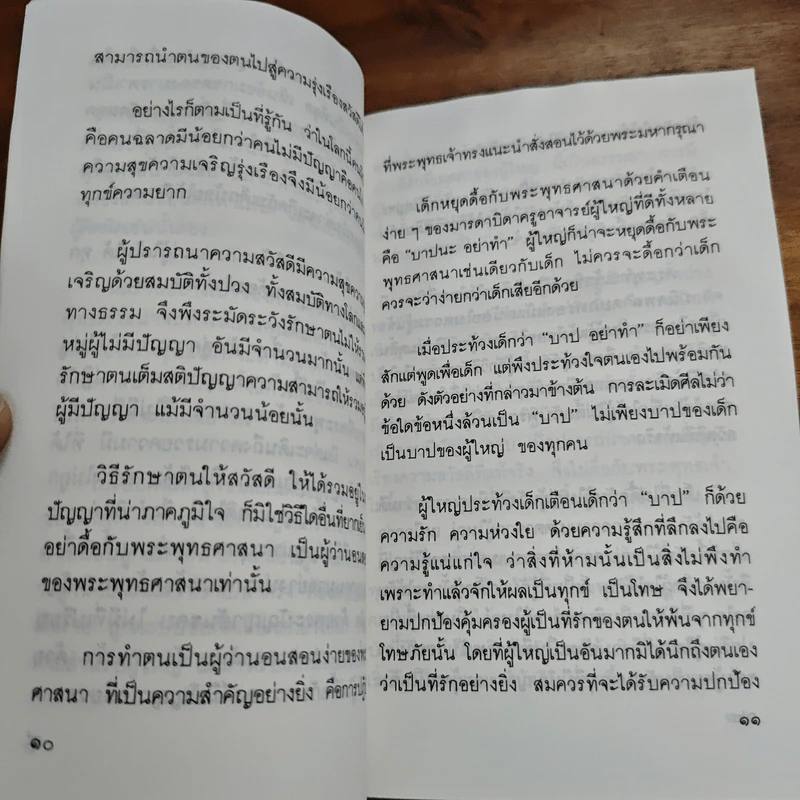 สามารถนำตนของตนไปสู่ความรุ่งเรืองสวัสดี
อย่างไรก็ตามเป็นที่รู้กัน ว่าในโลกนี้
คือคนฉลาดมีน้อยกว่าคนไม่มีปัญญาคือ
ความสุขความเจริญรุ่งเรืองจึงมีน้อยกว่า
ทุกข์ความยาก
ผู้ปรารถนาความสวัสดีมีความสุขความ
เจริญด้วยสมบัติทั้งปวง ทั้งสมบัติทางโลก
ทางธรรม จึงพึงระมัดระวังรักษาตนไม่ให้
หมู่ผู้ไม่มีปัญญา อันมีจำนวนมากนั้น
รักษาตนเต็มสติปัญญาความสามารถให้
ผู้มีปัญญา แม้มีจำนวนน้อยนั้น
วิธีรักษาตนให้สวัสดี ให้ได้รวมอยู่
ปัญญาที่น่าภาคภูมิใจ ก็มิใช่วิธีใดอื่นที่ยาก
อย่าดื้อกับพระพุทธศาสนา เป็นผู้ว่านอน
ของพระพุทธศาสนาเท่านั้น
การทำตนเป็นผู้ว่านอนสอนง่ายของ
ศาสนา ที่เป็นความสำคัญอย่างยิ่ง คือการ
๑๐
ที่พระพุทธเจ้าทรงแนะนำสั่งสอนไว้ด้วยพระมหากรุณา
เด็กหยุดดื้อกับพระพุทธศาสนาด้วยคำเตือน
ง่าย ๆ ของมารดาบิดาครูอาจารย์ผู้ใหญ่ที่ดีทั้งหลาย
คือ “บาปนะ อย่าทำ” ผู้ใหญ่ก็น่าจะหยุดดื้อกับพระ
พุทธศาสนาเช่นเดียวกับเด็ก ไม่ควรจะดื้อกว่าเด็ก
ควรจะว่าง่ายกว่าเด็กเสียอีกด้วย
เมื่อประท้วงเด็กว่า “บาป อย่าทำ” ก็อย่าเพียง
สักแต่พูดเพื่อเด็ก แต่พึงประท้วงใจตนเองไปพร้อมกัน
ด้วย ดังตัวอย่างที่กล่าวมาข้างต้น การละเมิดศีลไม่ว่า
ข้อใดข้อหนึ่งล้วนเป็น “บาป” ไม่เพียงบาปของเด็ก
เป็นบาปของผู้ใหญ่ ของทุกคน
ผู้ใหญ่ประท้วงเด็กเตือนเด็กว่า “บาป” ก็ด้วย
ความรัก ความห่วงใย ด้วยความรู้สึกที่ลึกลงไปคือ
ความรู้แน่แก่ใจ ว่าสิ่งที่ห้ามนั้นเป็นสิ่งไม่พึงทำ
เพราะทำแล้วจักให้ผลเป็นทุกข์ เป็นโทษ จึงได้พยา-
ยามปกป้องคุ้มครองผู้เป็นที่รักของตนให้พ้นจากทุกข์
โทษภัยนั้น โดยที่ผู้ใหญ่เป็นอันมากมิได้นึกถึงตนเอง
ว่าเป็นที่รักอย่างยิ่ง สมควรที่จะได้รับความปกป้อง
๑๑